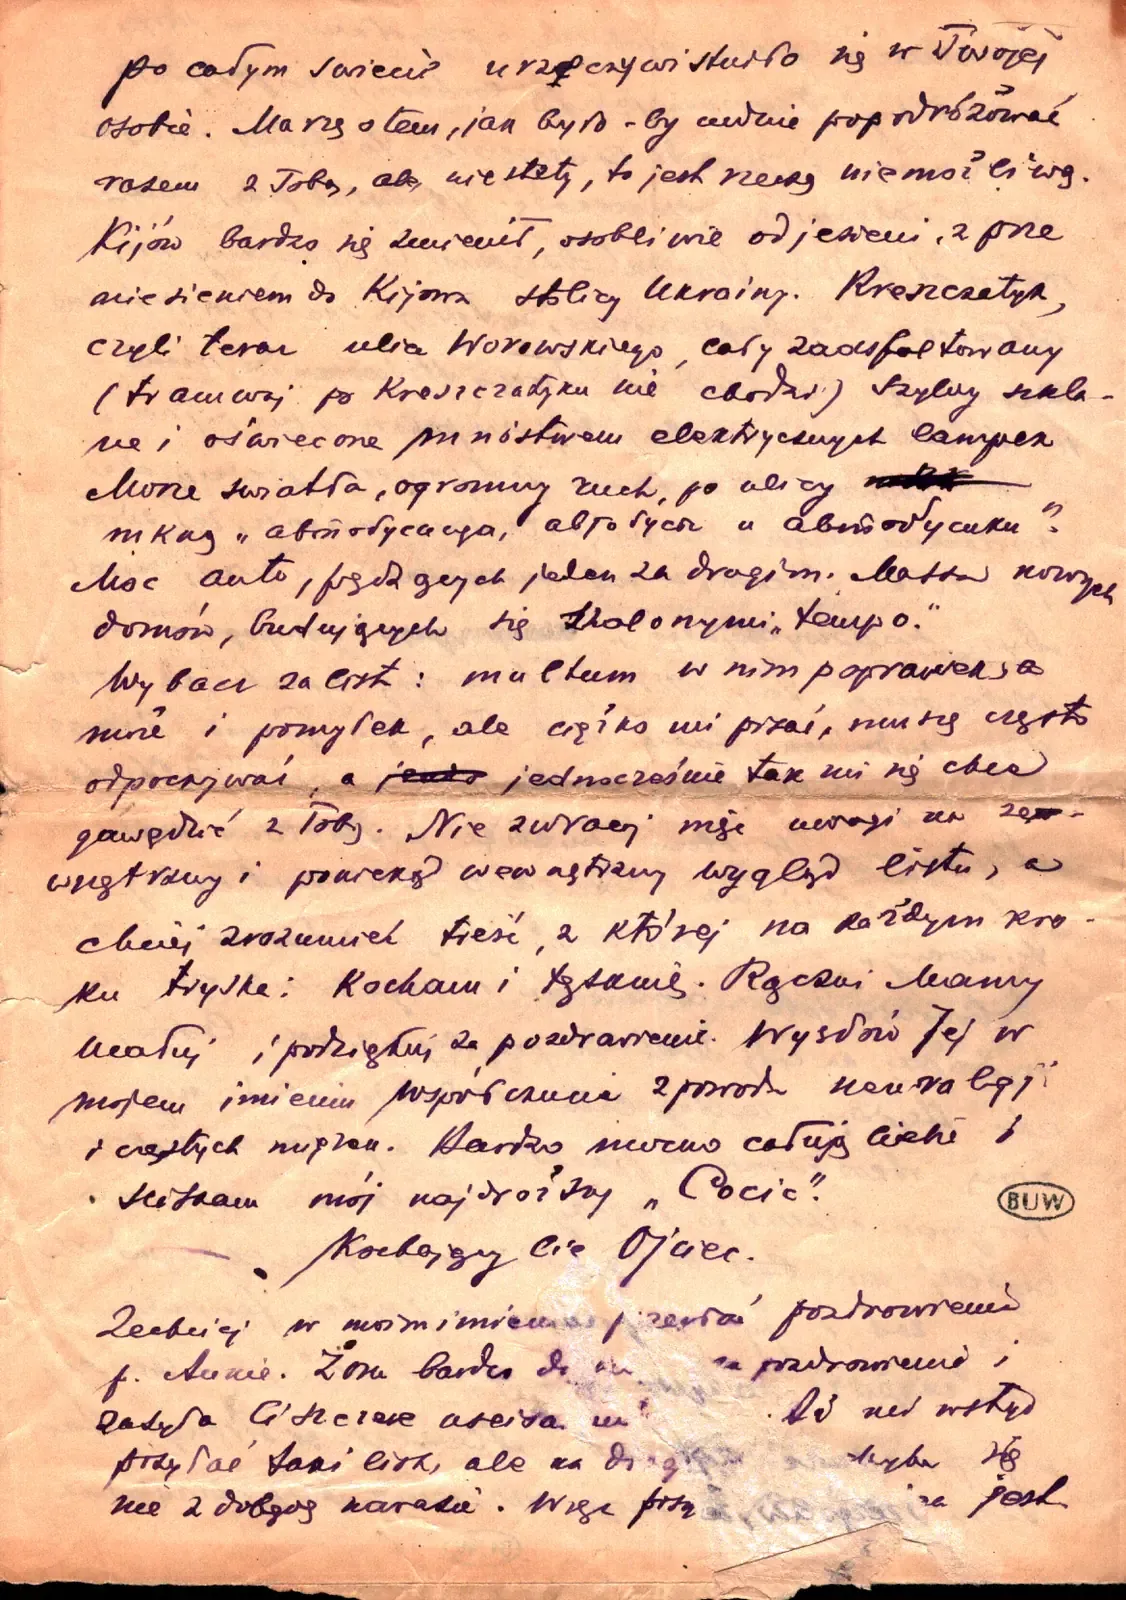 po całym świecie urzeczywistniło się w Twojej
osobie. Marzę o tem, jak było-by cudnie popodróżować
razem z Tobą, ale niestety, to jest rzeczą niemożliwą.
Kijów bardzo się zmienił, osobliwie od jesieni, z prze
niesieniem do Kijowa stolicy Ukrainy. Kreszczatyk,
czyli teraz ulica Worowskiego, cały zaasfaltowany
(tramwaj po Kreszczatyku nie chodzi) Szyby szkla-
ne i oświecone mnóstwem elektrycznych lampek
Morze światła, ogromny ruch, po ulicy
mkną „
Moc auto, pędzących jeden za drugim. Massa nowych
domów, budujących się szalonymi „tempo".
Wybacz za list: multum w nim poprawek, a
może i pomyłek, ale ciężko mi pisać, muszę często
odpoczywać, a jednocześnie tak mi się chce
gawędzić z Tobą. Nie zwracaj więc uwagi na ze-
wnętrzny i poniekąd wewnętrzny wygląd listu, a
chciej zrozumieć treść, z której na każdym kro-
ku tryska: Kocham i tęsknię. Rączki Mamy
ucałuj i podziękuj za pozdrowienie. Wysłów Jej w
mojem imieniu współczucie z powodu neuralgji
i częstych migren. Bardzo mocno całuję Ciebie i
ściskam mój najdroższy „Cocie".
Kochający Cię Ojciec.
BUW
Zechciej w moim imieniu przesłać pozdrowienie
p. Annie. Żona bardzo za pozdrowienie i
wstyd
posyłać taki list, ale na chyba się
nie zdobędę narazie. Więc jest